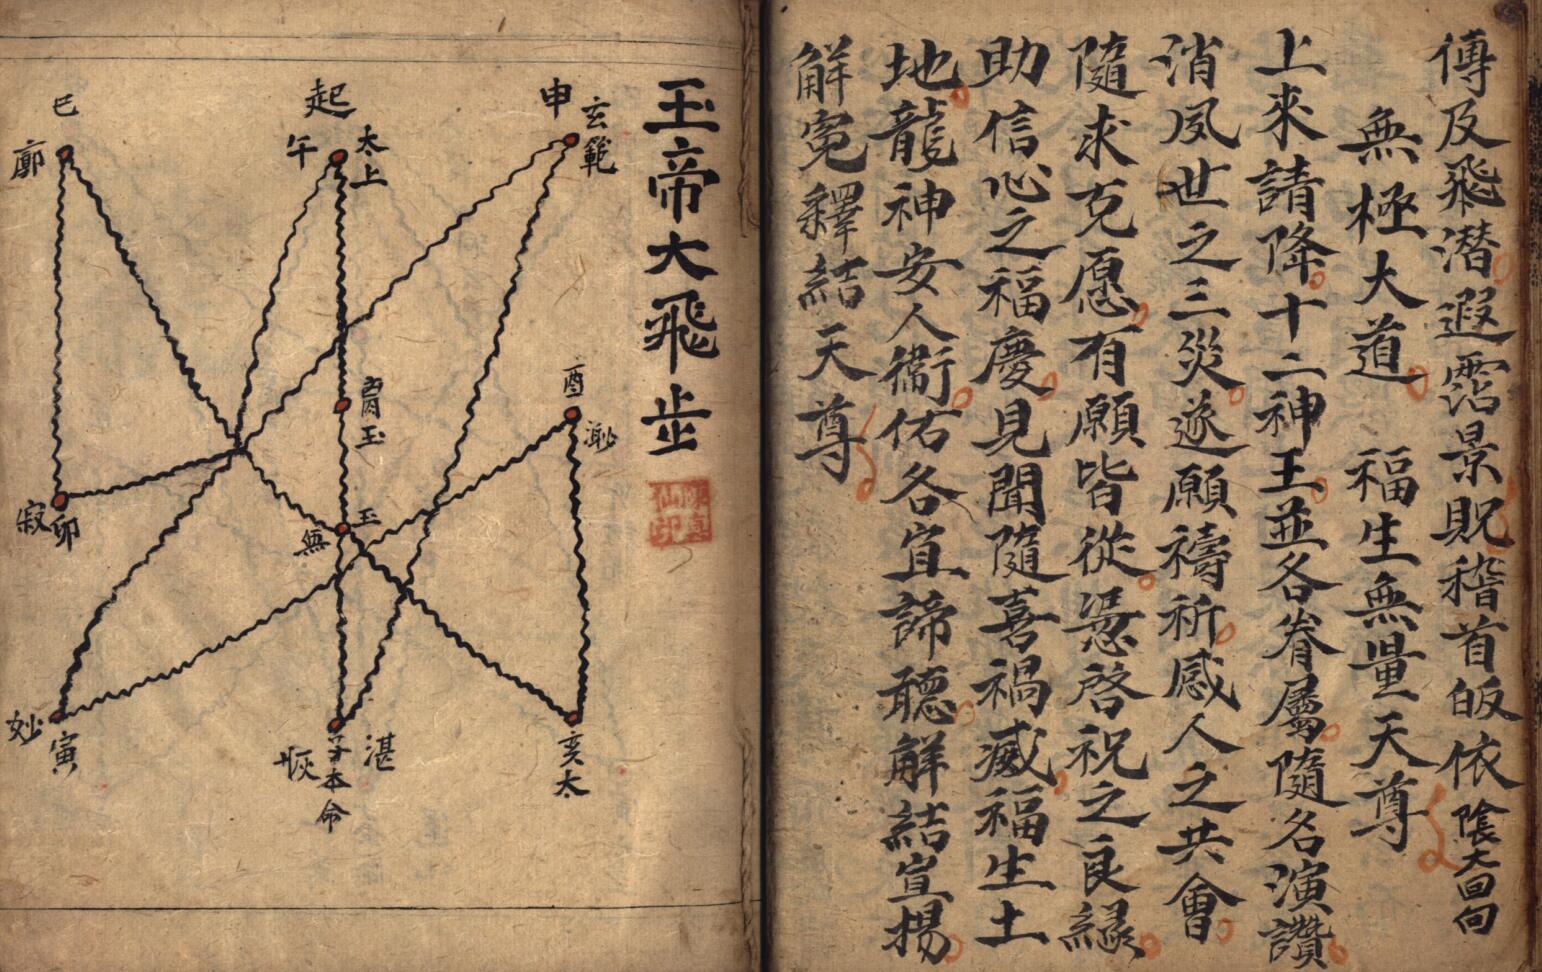 傳及飛潛遐霑景貺稽首皈依陰大回向
無極大道 福生無量天尊
上來請降十二神王並各眷屬隨名演讚
消夙世之三災遂願禱祈感人之共會
隨求克愿有願皆從恐啓祝之良緣
助信心之福慶見聞隨喜禍滅福生土
地龍神安人衛佑各宜諦聽解結宣揚
解冤釋結天尊
玉帝大飛步
申
玄範
起
午
太上
巳
廓
酉
渺
玉
玉
無
寂
卯
妙
寅
子本命
湛
恢
亥太